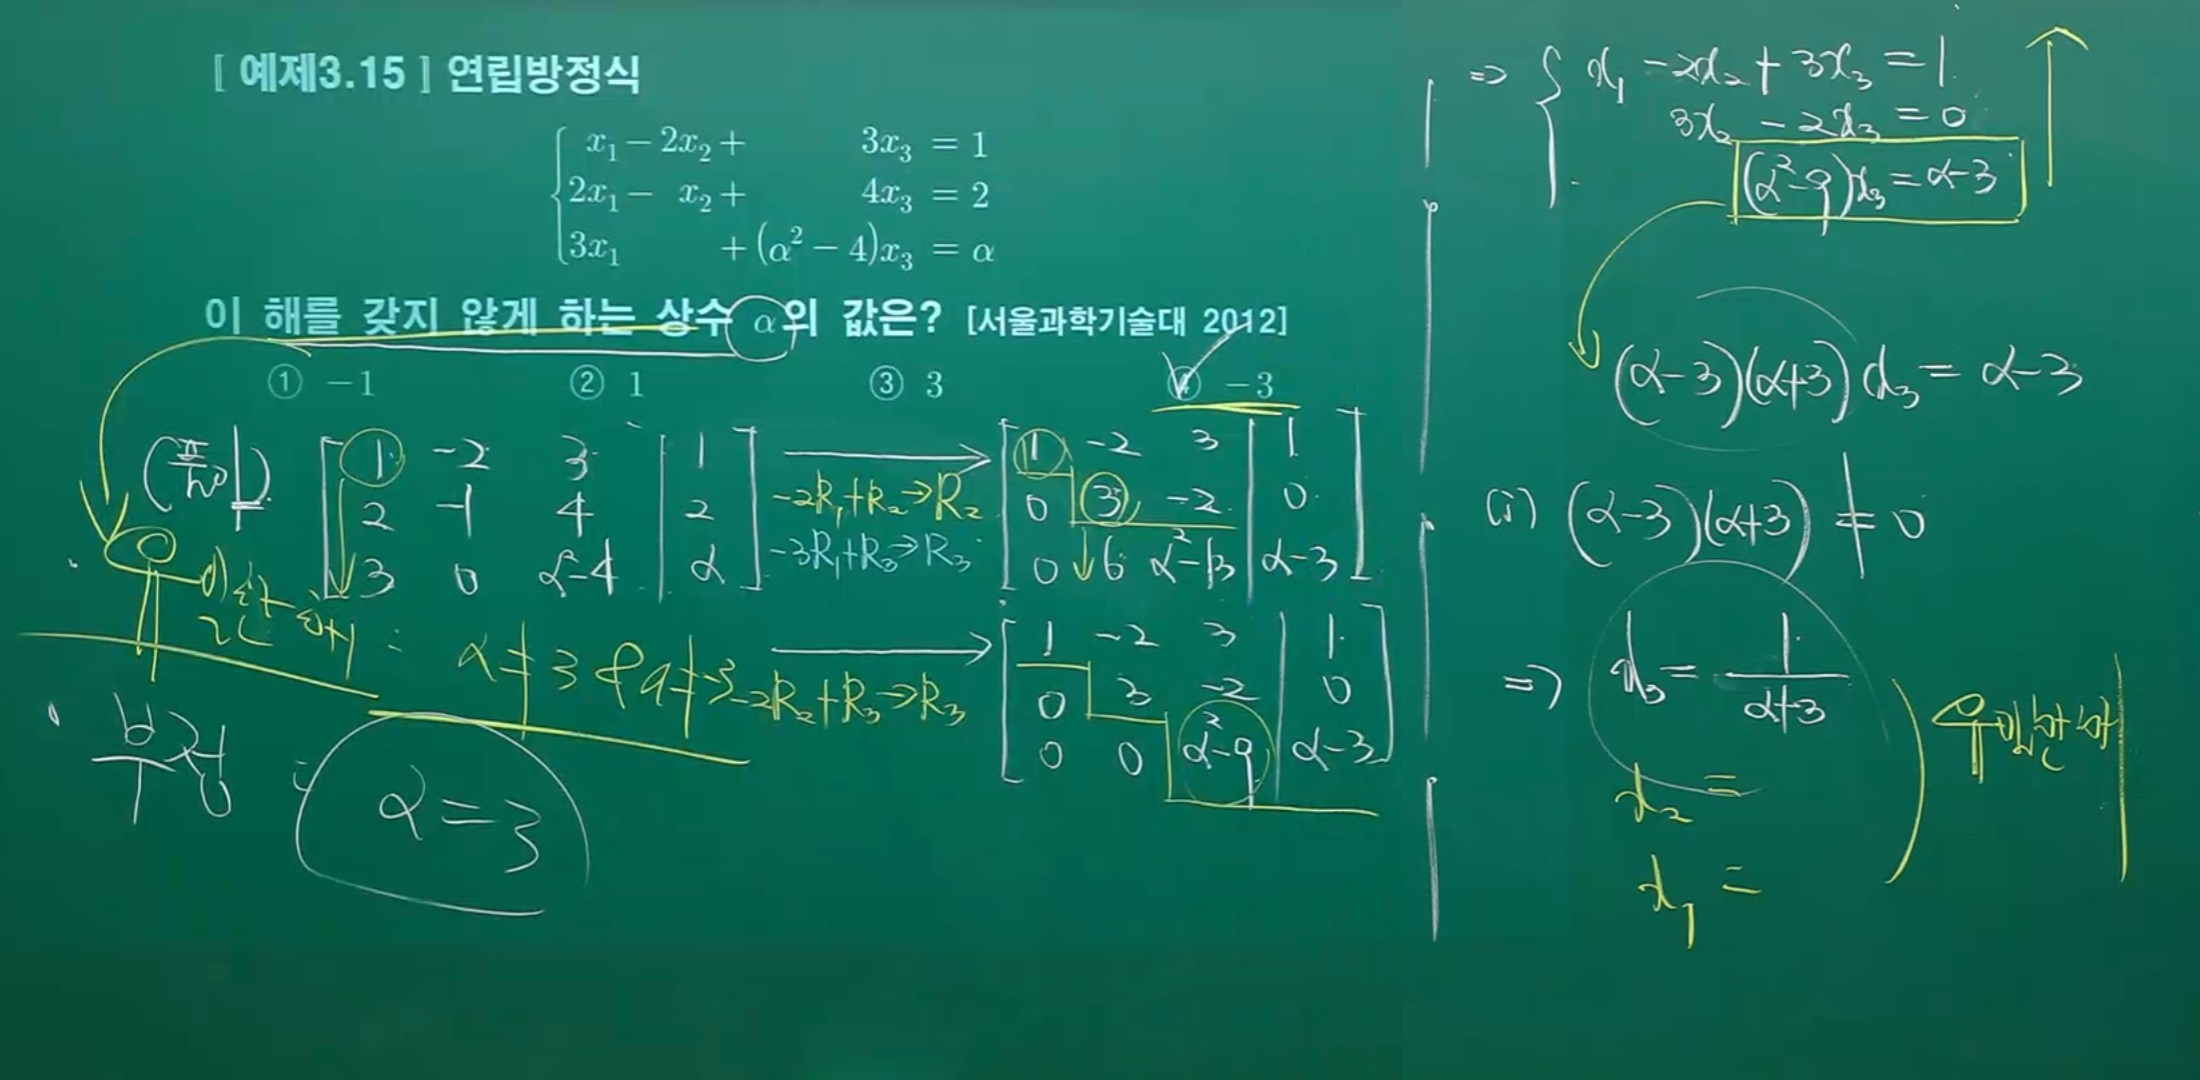 [ 예제3.15 ] 연립방정식
x₁ − 2x₂ + 3x₃ = 1
2x₁ − x₂ + 4x₃ = 2
3x₁ + (α² − 4)x₃ = α
이 해를 갖지 않게 하는 상수 α의 값은? [서울과학기술대 2012]
① −1 ② 1 ③ 3 ④ −3
(풀이)
1 -2 3 | 1
2 -1 4 | 2
3 0 α²-4 | α
-2R₁+R₂→R₂
-3R₁+R₃→R₃
1 -2 3 | 1
0 3 -2 | 0
0 6 α²-13 | α-3
-2R₂+R₃→R₃
1 -2 3 | 1
0 3 -2 | 0
0 0 α²-9 | α-3
유일한 해 : α≠3 & α≠-3
부정 : α=3
⇒ x₁ -2x₂ + 3x₃ = 1
3x₂ - 2x₃ = 0
(α²-9)x₃ = α-3
(α-3)(α+3)x₃ = α-3
(i) (α-3)(α+3) ≠ 0
⇒ x₃ = 1/(α+3)
x₂ =
x₁ =